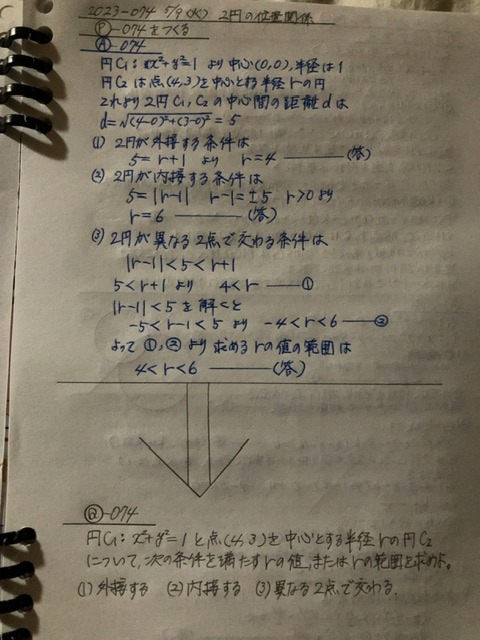 2023-074 5/9(火) 2円の位置関係
Ⓟ-074をつくる
Ⓐ-074
円C₁: x²+y²=1 より中心(0,0), 半径は1
円C₂は点(4,3)を中心とする半径rの円
これより2円C₁,C₂の中心間の距離dは
d=√(4-0)²+(3-0)² = 5
(1) 2円が外接する条件は
5=r+1 より r=4 ―――(答)
(2) 2円が内接する条件は
5=|r-1| r-1=±5 r>0より
r=6 ―――(答)
(3) 2円が異なる2点で交わる条件は
|r-1|<5<r+1
5<r+1より 4<r ――①
|r-1|<5を解くと
-5<r-1<5より -4<r<6 ――②
よって①,②より求めるrの値の範囲は
4<r<6 ―――(答)
Ⓠ-074
円C₁: x²+y²=1と点(4,3)を中心とする半径rの円C₂
について,次の条件を満たすrの値,またはrの範囲を求めよ。
(1)外接する (2)内接する (3)異なる2点で交わる.